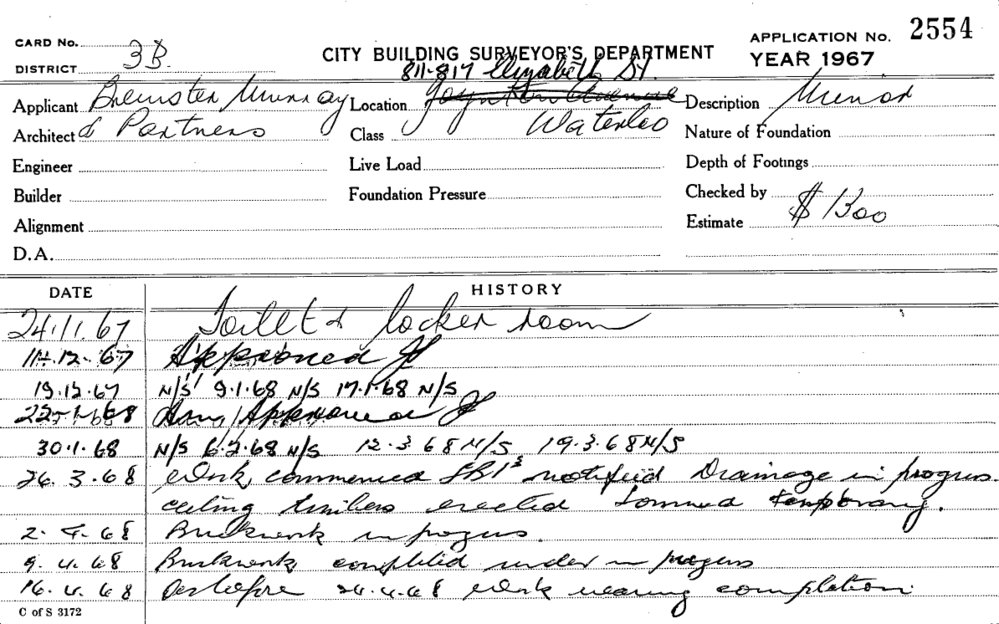 CARD No. 3B. CITY BUILDING SURVEYOR'S DEPARTMENT APPLICATION No. 2554
DISTRICT 811-817 Elizabeth St. YEAR 1967
Applicant Brewster Murray Location Description Minor
Architect & Partners Class Waterloo Nature of Foundation
Engineer Live Load Depth of Footings
Builder Foundation Pressure Checked by
Alignment Estimate $1300
D.A.
DATE HISTORY
24.11.67 Toilet & locker room
11.12.67 Approved
19.12.67 N/S 9.1.68 N/S 17.1.68 N/S
22.1.68 Approved
30.1.68 N/S 6.2.68 N/S 12.3.68 N/S 19.3.68 N/S
26.3.68 Work commenced notified Drainage in progress.
ceiling timbers erected temporary.
2.4.68 Brickwork in progress.
9.4.68 Brickwork completed render in progress
16.4.68 As before 24.4.68 Work nearing completion
C of S 3172